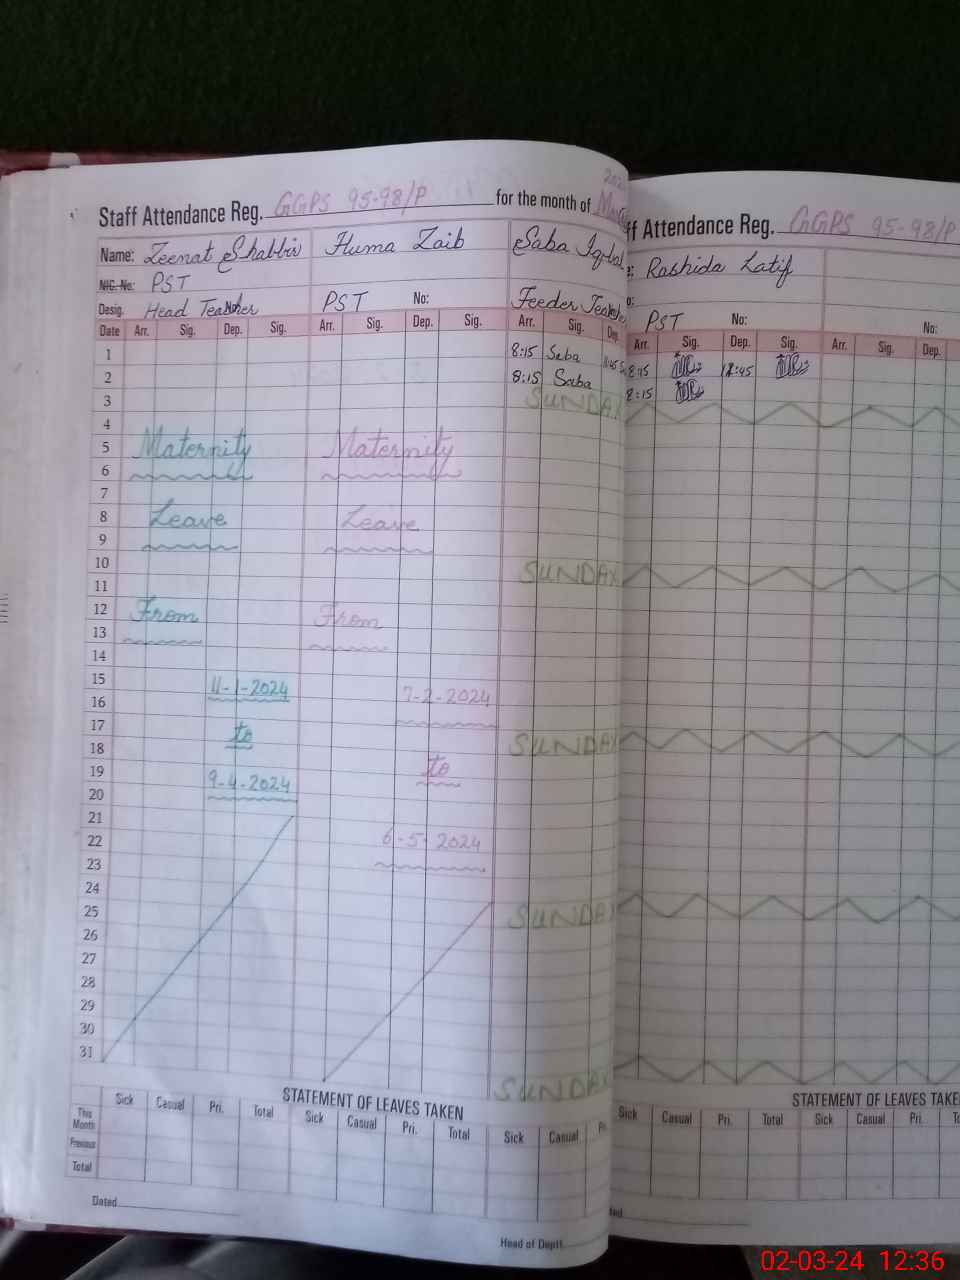 Staff Attendance Reg. GGPS 95-98/P for the month of
Name: Zeenat Shabbir Huma Zaib Saba Iqbal
NIC. No: PST
Desig. Head Teacher PST No: Feeder Teacher
Date Arr. Sig. Dep. Sig. Arr. Sig. Dep. Sig. Arr. Sig. Dep.
1 8:15 Saba
2 8:15 Saba
3 SUNDAY
4
5 Maternity Maternity
6
7
8 Leave Leave
9
10 SUNDAY
11
12 From From
13
14
15 11-1-2024 7-2-2024
16
17 SUNDAY
18 to
19 to
20 9-4-2024
21
22 6-5-2024
23
24
25 SUNDAY
26
27
28
29
30
31 SUNDAY
STATEMENT OF LEAVES TAKEN
Sick Casual Pri. Total Sick Casual Pri. Total Sick Casual
This Month
Previous
Total
Dated
Head of Deptt.
ff Attendance Reg. GGPS 95-98/P
Rashida Latif
PST No: No:
Arr. Sig. Dep. Sig. Arr. Sig. Dep.
8:15 12:45
8:15
STATEMENT OF LEAVES TAKE
Sick Casual Pri. Total Sick Casual Pri.
02-03-24 12:36